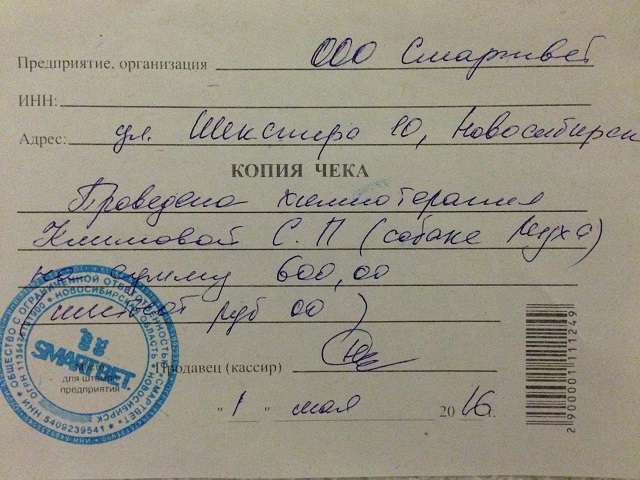 Предприятие, организация ООО Смартвет
ИНН:
Адрес: ул. Шекспира 10, Новосибирск
КОПИЯ ЧЕКА
Проведена химиотерапия
Климовой С. П (собаке Муха)
на сумму 600,00
(шестьсот руб 00)
Продавец (кассир)
"1" мая 2016.
ОБЩЕСТВО С ОГРАНИЧЕННОЙ ОТВЕТСТВЕННОСТЬЮ «СМАРТВЕТ»
НОВОСИБИРСКАЯ ОБЛАСТЬ
НОВОСИБИРСК
ИНН 5409239541
SMARTВЕТ
для штампа
предприятия
2900001111249